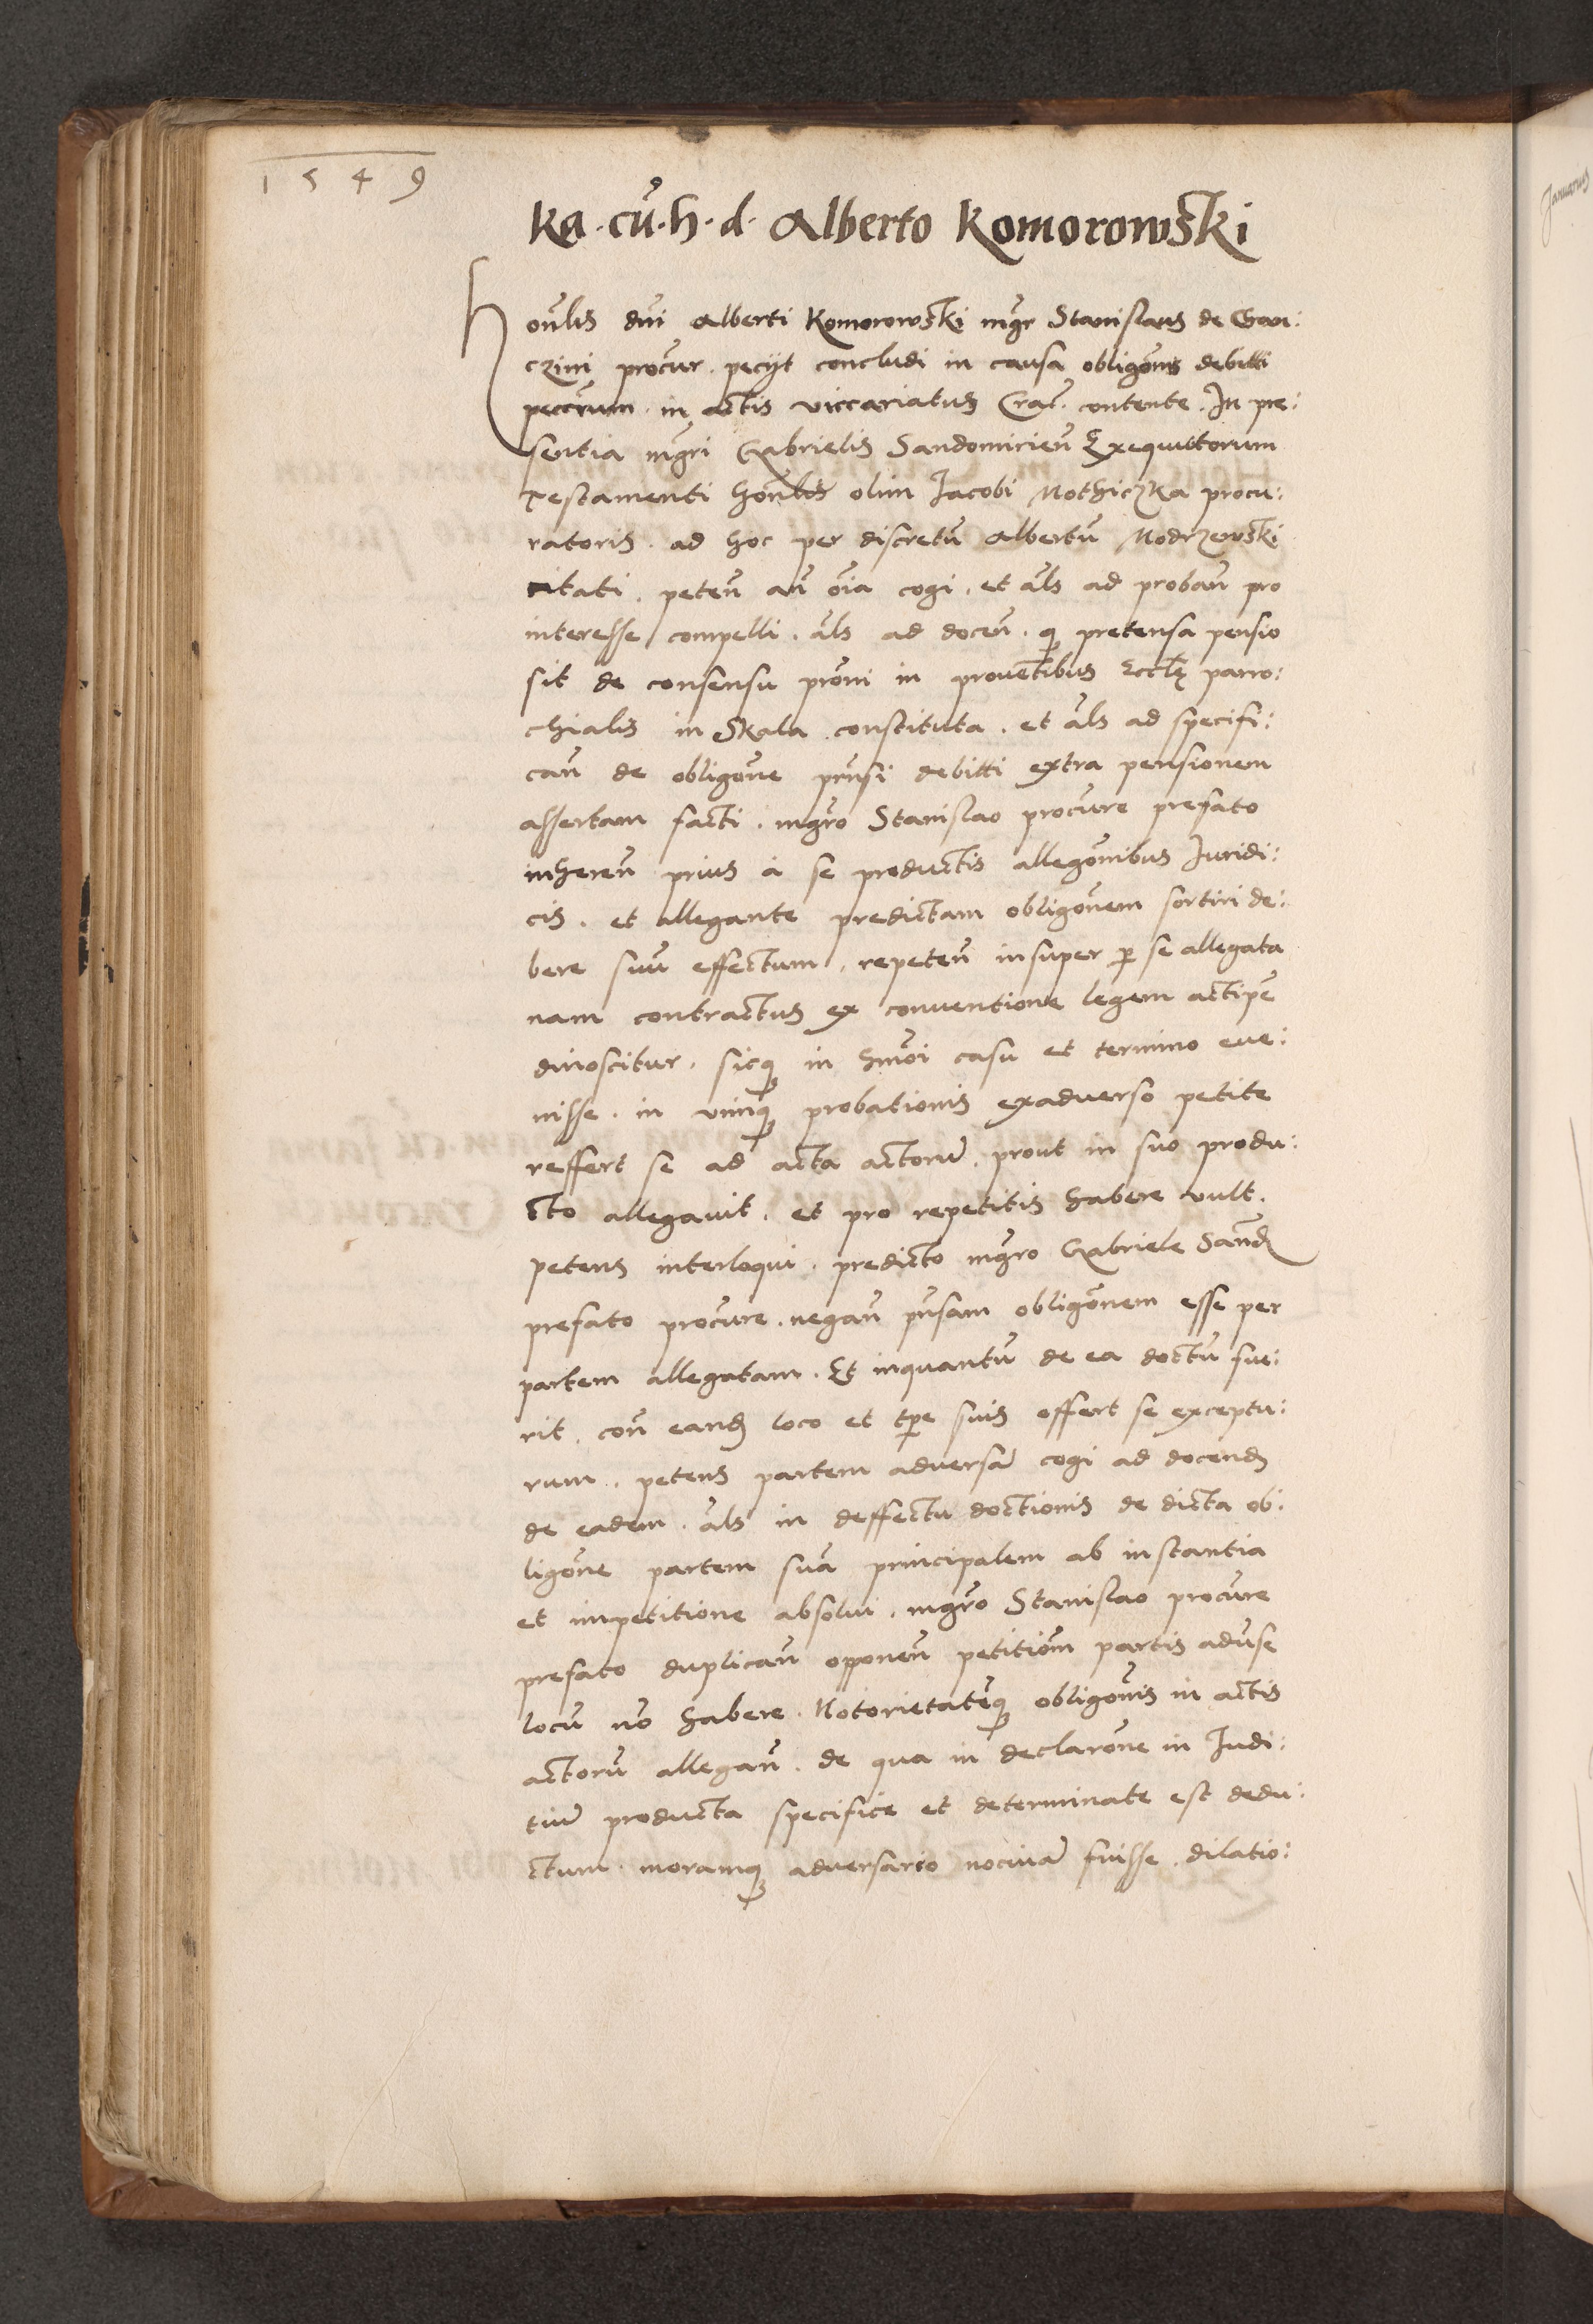 1549
Ka. cũ. h. d. Alberto Komorowski
Honlis dni Alberti Komorowski mgr Stanislaus de Gan:
czini procur. pecijt concludi in causa obligonis debitti
peccrum. in actis viccariatus Crac. contente. In pre:
sentia mgri Gabrielis Sandomirien Exequuttorum
Testamenti honlis olim Jacobi Mothiczka procu:
ratoris. ad hoc per discretũ Albertũ Modrzewski
citati. peten an oia cogi. et als ad proban pro
interesse compelli. als ad docen. q pretensa pensio
sit de consensu proni in prouentibus Eccle parro:
chialis in Skala constituta. et als ad specifi:
can de obligone prnsi debitti extra pensionem
assertam facti. mgro Stanislao procure prefato
inheren prius a se productis allegonibus Juridi:
cis. et allegante predictam obligonem sortiri de:
bere suũ effectum. repeten insuper p se allegata
nam contractus ex conuentione legem actipe
dinoscitur. sicq in hmoi casu et termino eue:
nisse. in vimq probationis exaduerso petite
reffert se ad acta actorũ. prout in suo produ:
cto allegauit. et pro repetitis habere vult.
petens interloqui. predicto mgro Gabriele Sand
prefato procure. negan pnsam obligonem esse per
partem allegatam. Et inquantũ de ea doctũ fue:
rit. con eand loco et tpe suis offert se exceptu:
rum. petens partem aduersã cogi ad docend
de eadem. als in deffectu doctionis de dicta ob:
ligone partem suã principalem ab instantia
et impetitione absolui. mgro Stanislao procure
prefato duplican opponen petitiom partis aduse
locũ nõ habere. Notorietateq obligonis in actis
actorũ allegan. de qua in declarone in Judi:
tiũ producta specifice et determinate est dedu:
ctum. moramq aduersario nociuã fuisse. dilatio:
Januarius